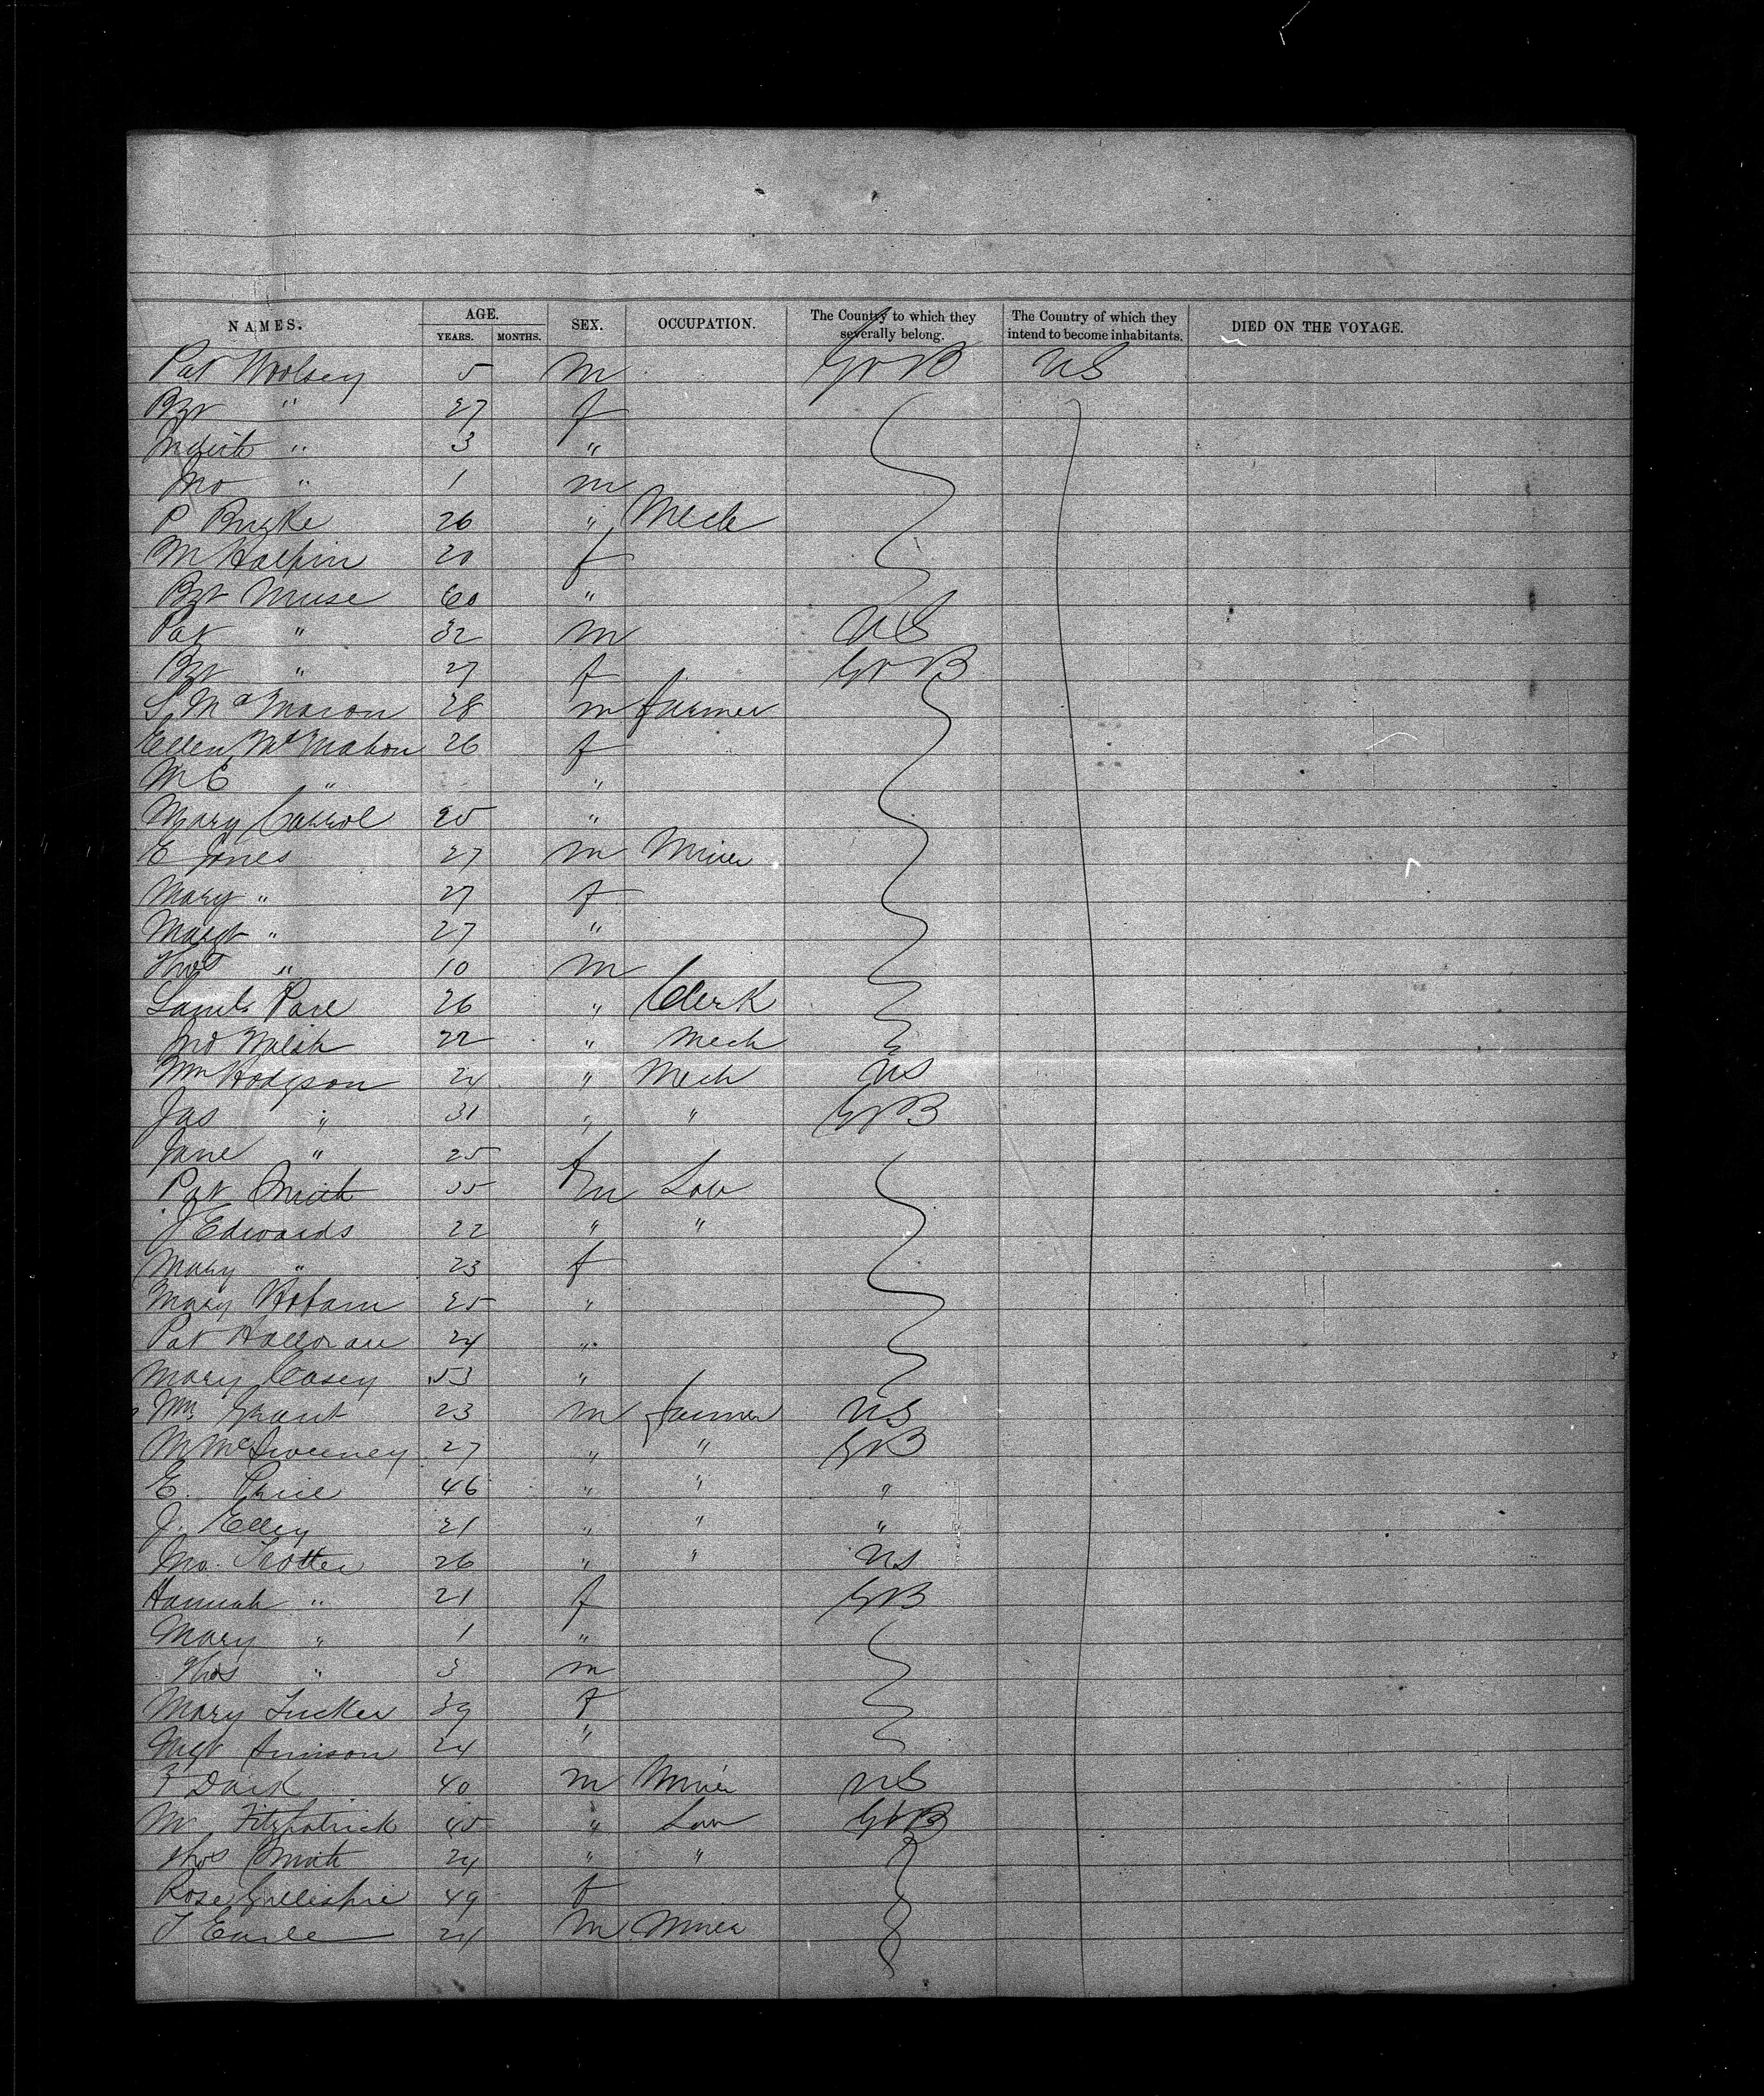 NAMES. AGE. YEARS. MONTHS. SEX. OCCUPATION. The Country to which they severally belong. The Country of which they intend to become inhabitants. DIED ON THE VOYAGE.
Pat Woolsey 5 m Gr B US
Bgt " 27 f
" 3 "
Jno " 1 m
P Burke 26 " Mech
M Halpin 20 f
Bgt Muse 60 "
Pat " 32 m US
Bgt " 27 f Gr B
28 m farmer
Ellen McMahon 26 f
M E " "
Mary Carrol 25 "
E Jones 27 m Miner
Mary " 27 f
Margt " 27 "
Thos " 10 m
26 " Clerk
Jno Walsh 22 " Mech
Wm Hodgson 24 " Mech US
Jas " 31 " " Gr B
Jane " 25 f
Pat Smith 35 m Lab
J Edwards 22 " "
Mary " 23 f
Mary 25 "
Pat Halloran 24 "
Mary Casey 53 "
Wm Grant 23 m farmer US
M McSweeney 27 " " Gr B
E. Price 46 " " "
J. Elley 21 " " "
Jno. Trotter 26 " " US
Hannah " 21 f Gr B
Mary " 1 "
Thos " 3 m
Mary Tucker 39 f
Mgt 24 "
40 m Miner US
M Fitzpatrick 45 " Lab Gr B
Thos Smith 24 " "
Rose Gillespie 49 f
T Earle 24 m Miner